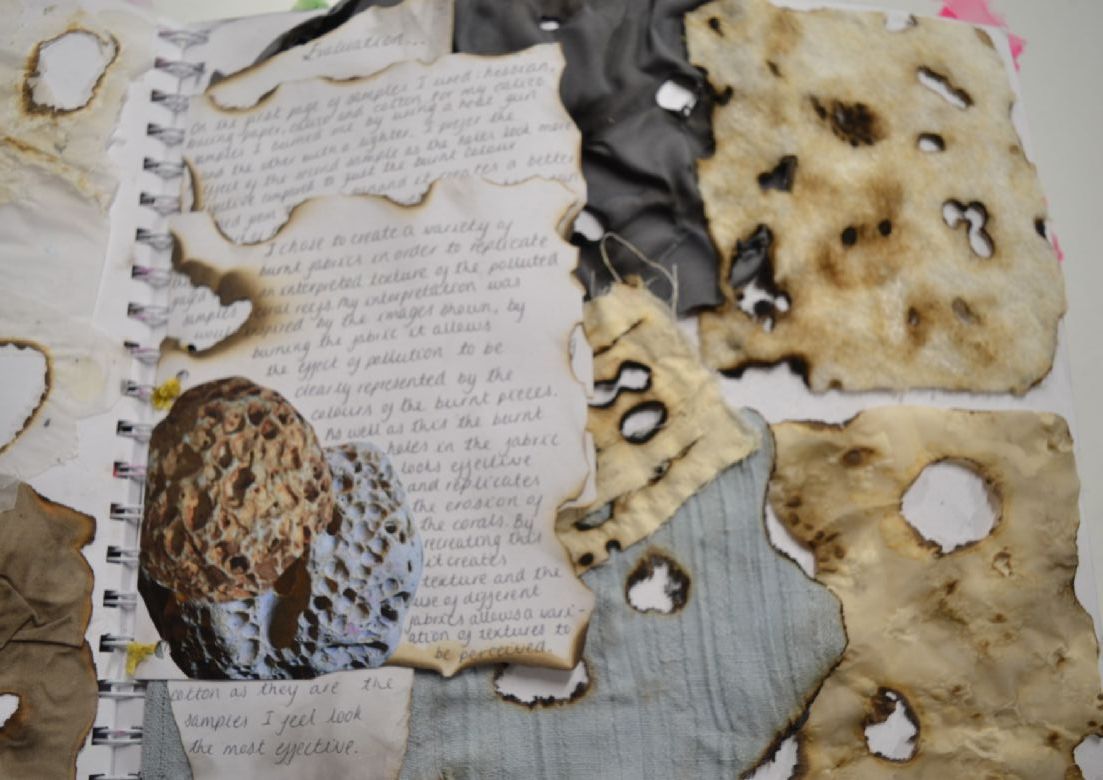 Evaluation...
On the first page of samples I used: hessian,
baking paper, and cotton for my
samples I burned one by using a heat gun
and the other with a lighter. I prefer the
effect of the second sample as the holes look more
effective compared to just the burnt colour
it creates a better
I chose to create a variety of
burnt fabrics in order to replicate
an interpreted texture of the polluted
coral reefs. My interpretation was
samples
inspired by the images shown, by
burning the fabric it allows
the effect of pollution to be
clearly represented by the
colours of the burnt pieces.
As well as this the burnt
holes in the fabric
looks effective
and replicates
the erosion of
the corals. By
recreating this
it creates
texture and the
use of different
fabrics allows a vari-
ation of textures to
be perceived.
cotton as they are the
samples I feel look
the most effective.